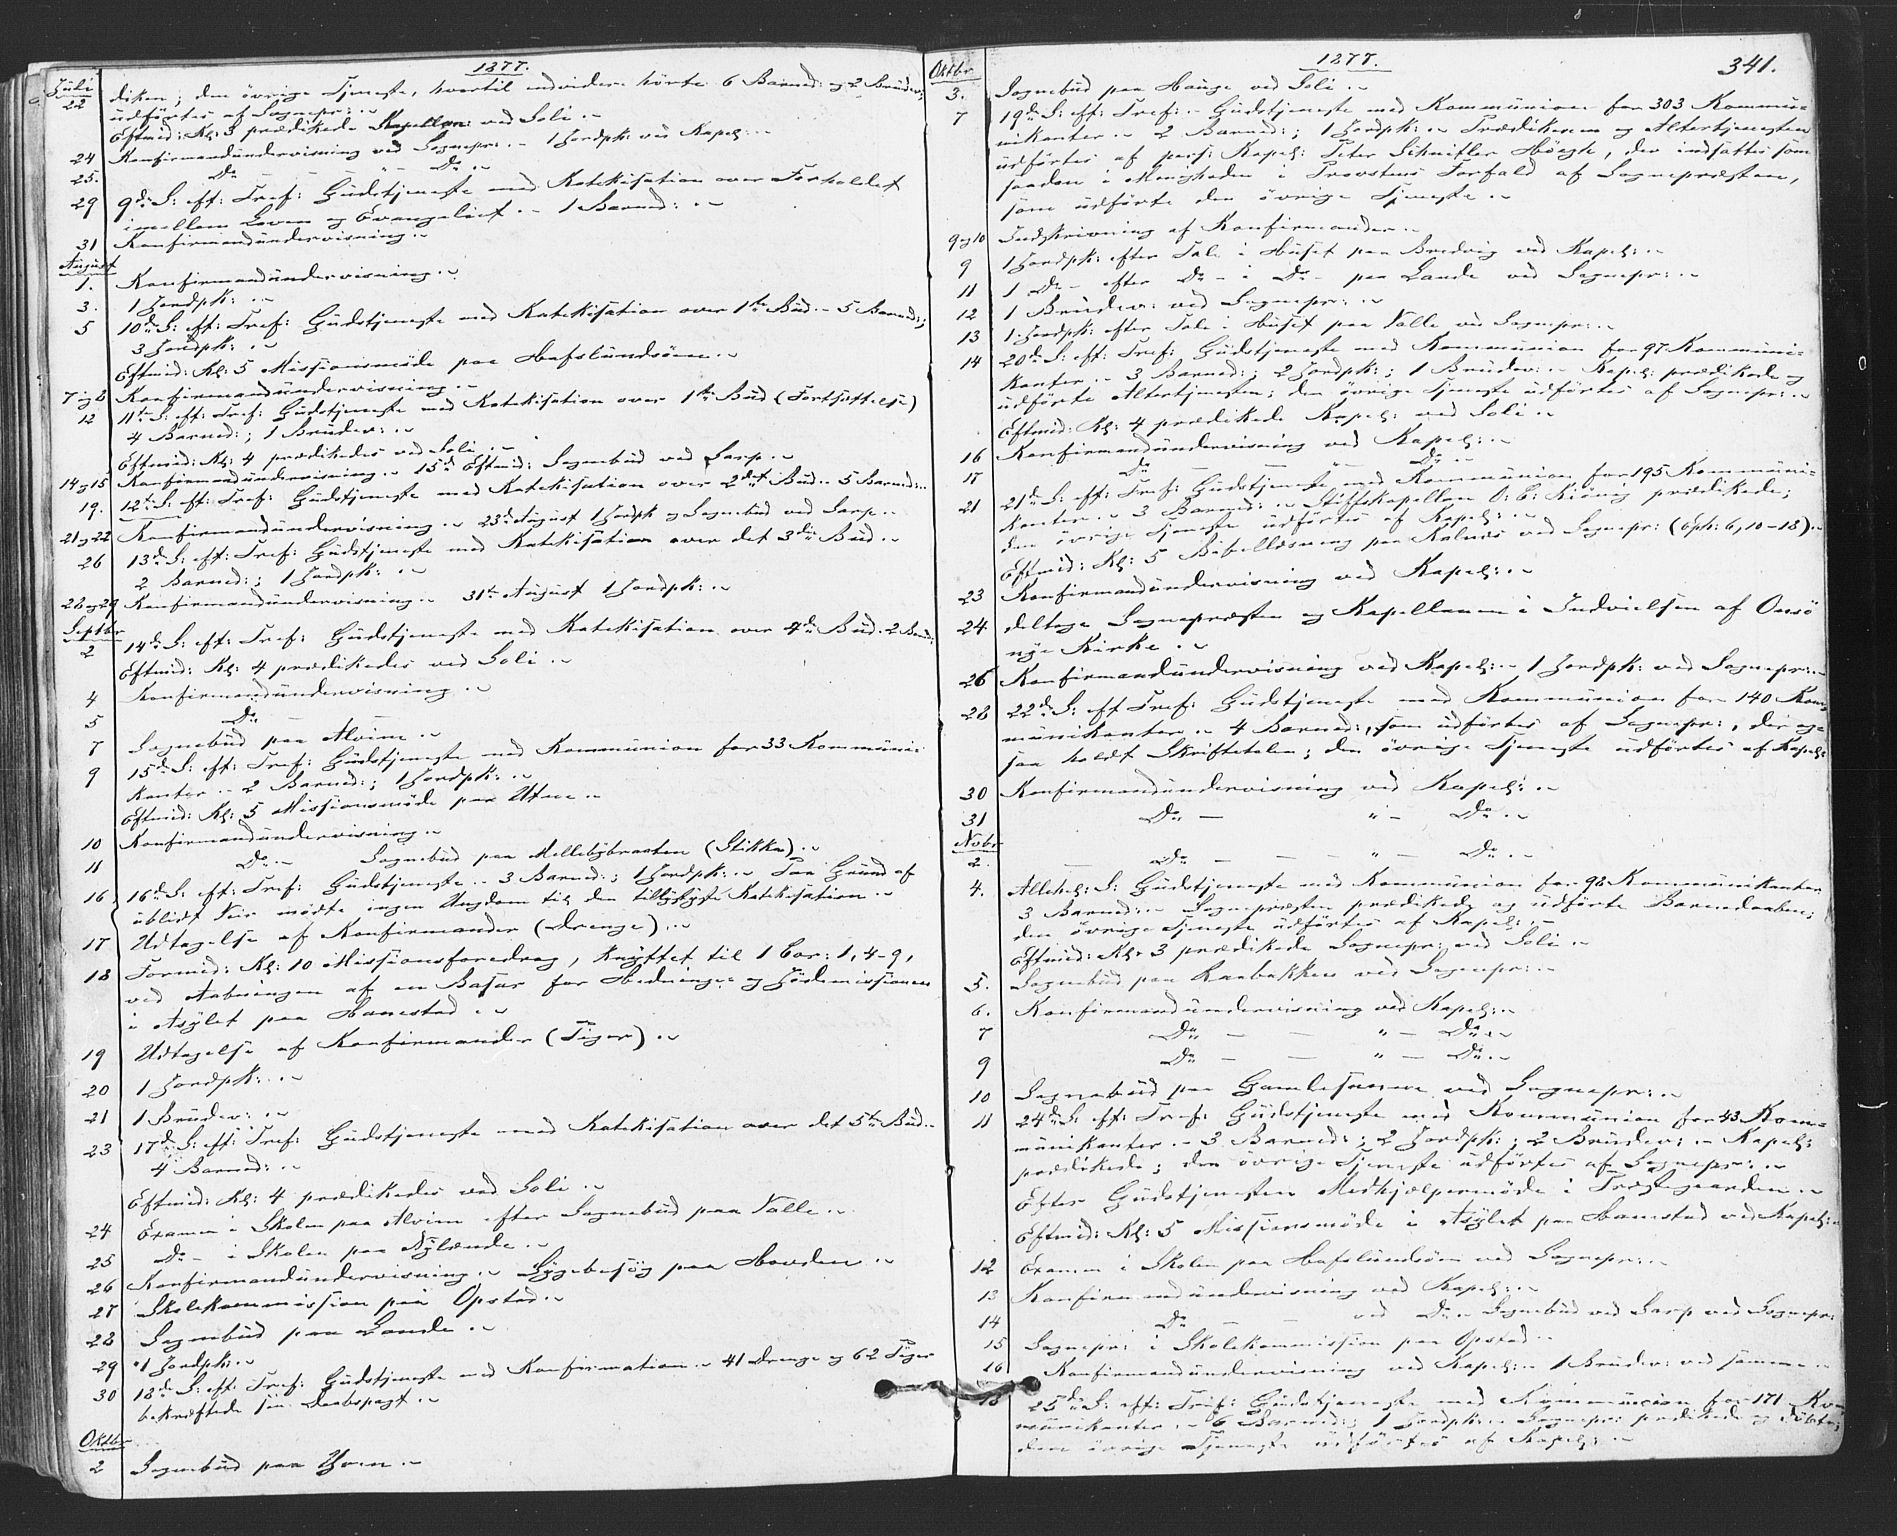 1877.
Juli
22 diken; den övrige Tjeneste, hvortil endvidere hörte 6 Barned: og 2 Brudev:
udförtes af Sognepr: .~
Eftmid: Kl: 3 prædikede Kapellan: ved Soli .~
24 Konfirmandundervisning ved Sognepr: .~ 1 Jordpk: ved Kapel: .~
25. Do — " — Do .~
29 9de S: eft: Tref: Gudstjeneste med Katekisation over Forholdet
imellem Loven og Evangeliet .~ 1 Barned: .~
31 Konfirmandundervisning .~
August
1. Konfirmandundervisning .~
3. 1 Jordpk: .~
5 10de S: eft: Tref: Gudstjeneste med Katekisation over 1te Bud .~ 5 Barned:;
3 Jordpk: .~
Eftmid: Kl: 5 Missionsmöde paa Hafslundsöen .~
7 og 8 Konfirmandundervisning .~
12 11te S: eft: Tref: Gudstjeneste med Katekisation over 1te Bud (Fortsættelse)
4 Barned:; 1 Brudev: .~
Eftmid: Kl: 4 prædikedes ved Soli .~
14 og 15 Konfirmandundervisning .~ 15de Eftmid: Sognebud ved Sarp .~
19. 12te S: eft: Tref: Gudstjeneste med Katekisation over 2det Bud .~ 5 Barned: .~
21 og 22 Konfirmandundervisning .~ 23de August 1 Jordpk og Sognebud ved Sarp .~
26 13de S: eft: Tref: Gudstjeneste med Katekisation over det 3die Bud .~
2 Barned:; 1 Jordpk: .~
28 og 29 Konfirmandundervisning .~ 31te August 1 Jordpk: .~
Septbr
2 14de S: eft: Tref: Gudstjeneste med Katekisation over 4de Bud. 2 Barned:
Eftmid: Kl: 4 prædikedes ved Soli .~
4 Konfirmandundervisning .~
5 Do — —
7 Sognebud paa Alvim .~
9 15de S: eft: Tref: Gudstjeneste med Kommunion for 33 Kommuni-
kanter .~ 2 Barned:; 1 Jordpk: .~
Eftmid: Kl: 5 Missionsmöde paa Utne .~
10 Konfirmandundervisning .~
11 Do .~ Sognebud paa Mellebybraaten (Stikka) .~
16 16de S: eft: Tref: Gudstjeneste .~ 3 Barned:; 1 Jordpk: .~ Paa Grund af
ublidt Veir mödte ingen Ungdom til den tillyste Katekisation .~
17 Udtagelse af Konfirmander (Drenge) .~
18 Formid: Kl: 10 Missionsforedrag, knyttet til 1 Cor: 1, 4-9,
ved Aabningen af en Basar for Hedninge- og Jödemissionen
i Asylet paa Hanestad .~
19 Udtagelse af Konfirmander (Piger) .~
20 1 Jordpk: .~
21 1 Brudev: .~
23 17de S: eft: Tref: Gudstjeneste med Katekisation over det 5te Bud .~
4 Barned: .~
Eftmid: Kl: 4 prædikedes ved Soli .~
24 Examen i Skolen paa Alvim efter Sognebud paa Valle .~
25 Do — i Skolen paa Nylænde .~
26 Konfirmandundervisning .~ Sygebesög paa Hovden .~
27 Skolekommission paa Opstad .~
28 Sognebud paa Lande .~
29 1 Jordpk: .~
30 18de S: eft: Tref: Gudstjeneste med Konfirmation .~ 41 Drenge og 62 Piger
bekræftede sin Daabspagt .~
Oktbr
2 Sognebud paa Yven .~
1877.
341.
Oktbr
3. Sognebud paa Hauge ved Soli .~
7 19de S: eft: Tref: Gudstjeneste med Kommunion for 303 Kommu-
nikanter .~ 2 Barned:; 1 Jordpk: .~ Prædikenen og Altertjenesten
udförtes af pers: Kapel: Peter Schnitler Höegh, der indsattes som
saadan i Menigheden i Provstens Forfald af Sognepræsten,
som udförte den övrige Tjeneste .~
9 og 10 Indskrivning af Konfirmander .~
9 1 Jordpk: efter Tale i Huset paa Bredvig ved Kapel: .~
11 1 Do — efter Do — i Do — paa Lande ved Sognepr: .~
12 1 Brudev: ved Sognepr: .~
13 1 Jordpk: efter Tale i Huset paa Valle ved Sognepr: .~
14 20de S: eft: Tref: Gudstjeneste med Kommunion for 97 Kommuni-
kanter .~ 3 Barned:; 2 Jordpk:; 1 Brudev: .~ Kapel: prædikede og
udförte Altertjenesten; den övrige Tjeneste udförtes af Sognepr: .~
Eftmid: Kl: 4 prædikede Kapel: ved Soli .~
16 Konfirmandundervisning ved Kapel: .~
17 Do — — " — Do .~
21 21de S: eft: Tref: Gudstjeneste med Kommunion for 195 Kommuni-
kanter .~ 3 Barned: .~ Stiftskapellan O: C: Kiönig prædikede;
den övrige Tjeneste udförtes af Kapel: .~
Eftmid: Kl: 5 Bibellæsning paa Kalnæs ved Sognepr: (Eph: 6, 10-18) .~
23 Konfirmandundervisning ved Kapel: .~
24 deltoge Sognepræsten og Kapellanen i Indvielsen af Onsö
nye Kirke .~
26 Konfirmandundervisning ved Kapel: .~ 1 Jordpk: ved Sognepr: .~
28 22de S: eft Tref: Gudstjeneste med Kommunion for 140 Kom-
munikanter .~ 4 Barned:, som udförtes af Sognepr:, der og-
saa holdt Skriftetalen; den övrige Tjeneste udförtes af Kapel:
30 Konfirmandundervisning ved Kapel: .~
31 Do — " — Do .~
Nobr
2. — Do — — — " — Do .~
4. Allehel: S: Gudstjeneste med Kommunion for 98 Kommunikanter
3 Barned: .~ Sognepræsten prædikede og udförte Barnedaaben;
den övrige Tjeneste udförtes af Kapel: .~
Eftmid: Kl: 3 prædikede Sognepr: ved Soli .~
5. Sognebud paa Raabakken ved Sognepr: .~
6. Konfirmandundervisning ved Kapel: .~
7 Do — — " — Do .~
9 Do — — " — Do .~
10 Sognebud paa Gamlesanne ved Sognepr: .~
11 24de S: eft: Tref: Gudstjeneste med Kommunion for 43 Kom-
munikanter .~ 3 Barned:; 2 Jordpk:; 2 Brudev: .~ Kapel:
prædikede; den övrige Tjeneste udförtes af Sognepr: .~
Efter Gudstjenesten Medhjælpermöde i Præstegaarden .~
Eftmid: Kl: 5 Missionsmöde i Asylet paa Hanestad ved Kapel: .~
12 Examen i Skolen paa Hafslundsöen ved Sognepr: .~
13 Konfirmandundervisning ved Kapel: .~
14 Do — — ved Do .~ Sognebud ved Sarp ved Sognepr:
15 Sognepr: i Skolekommission paa Opstad .~
16 Konfirmandundervisning ved Kapel: .~ 1 Brudev: ved samme .~
18 25de S: eft: Tref: Gudstjeneste med Kommunion for 171 Kom-
munikanter .~ 6 Barned:; 1 Jordpk: .~ Sognepr: prædikede og döbte;
den övrige Tjeneste udförtes af Kapel: .~